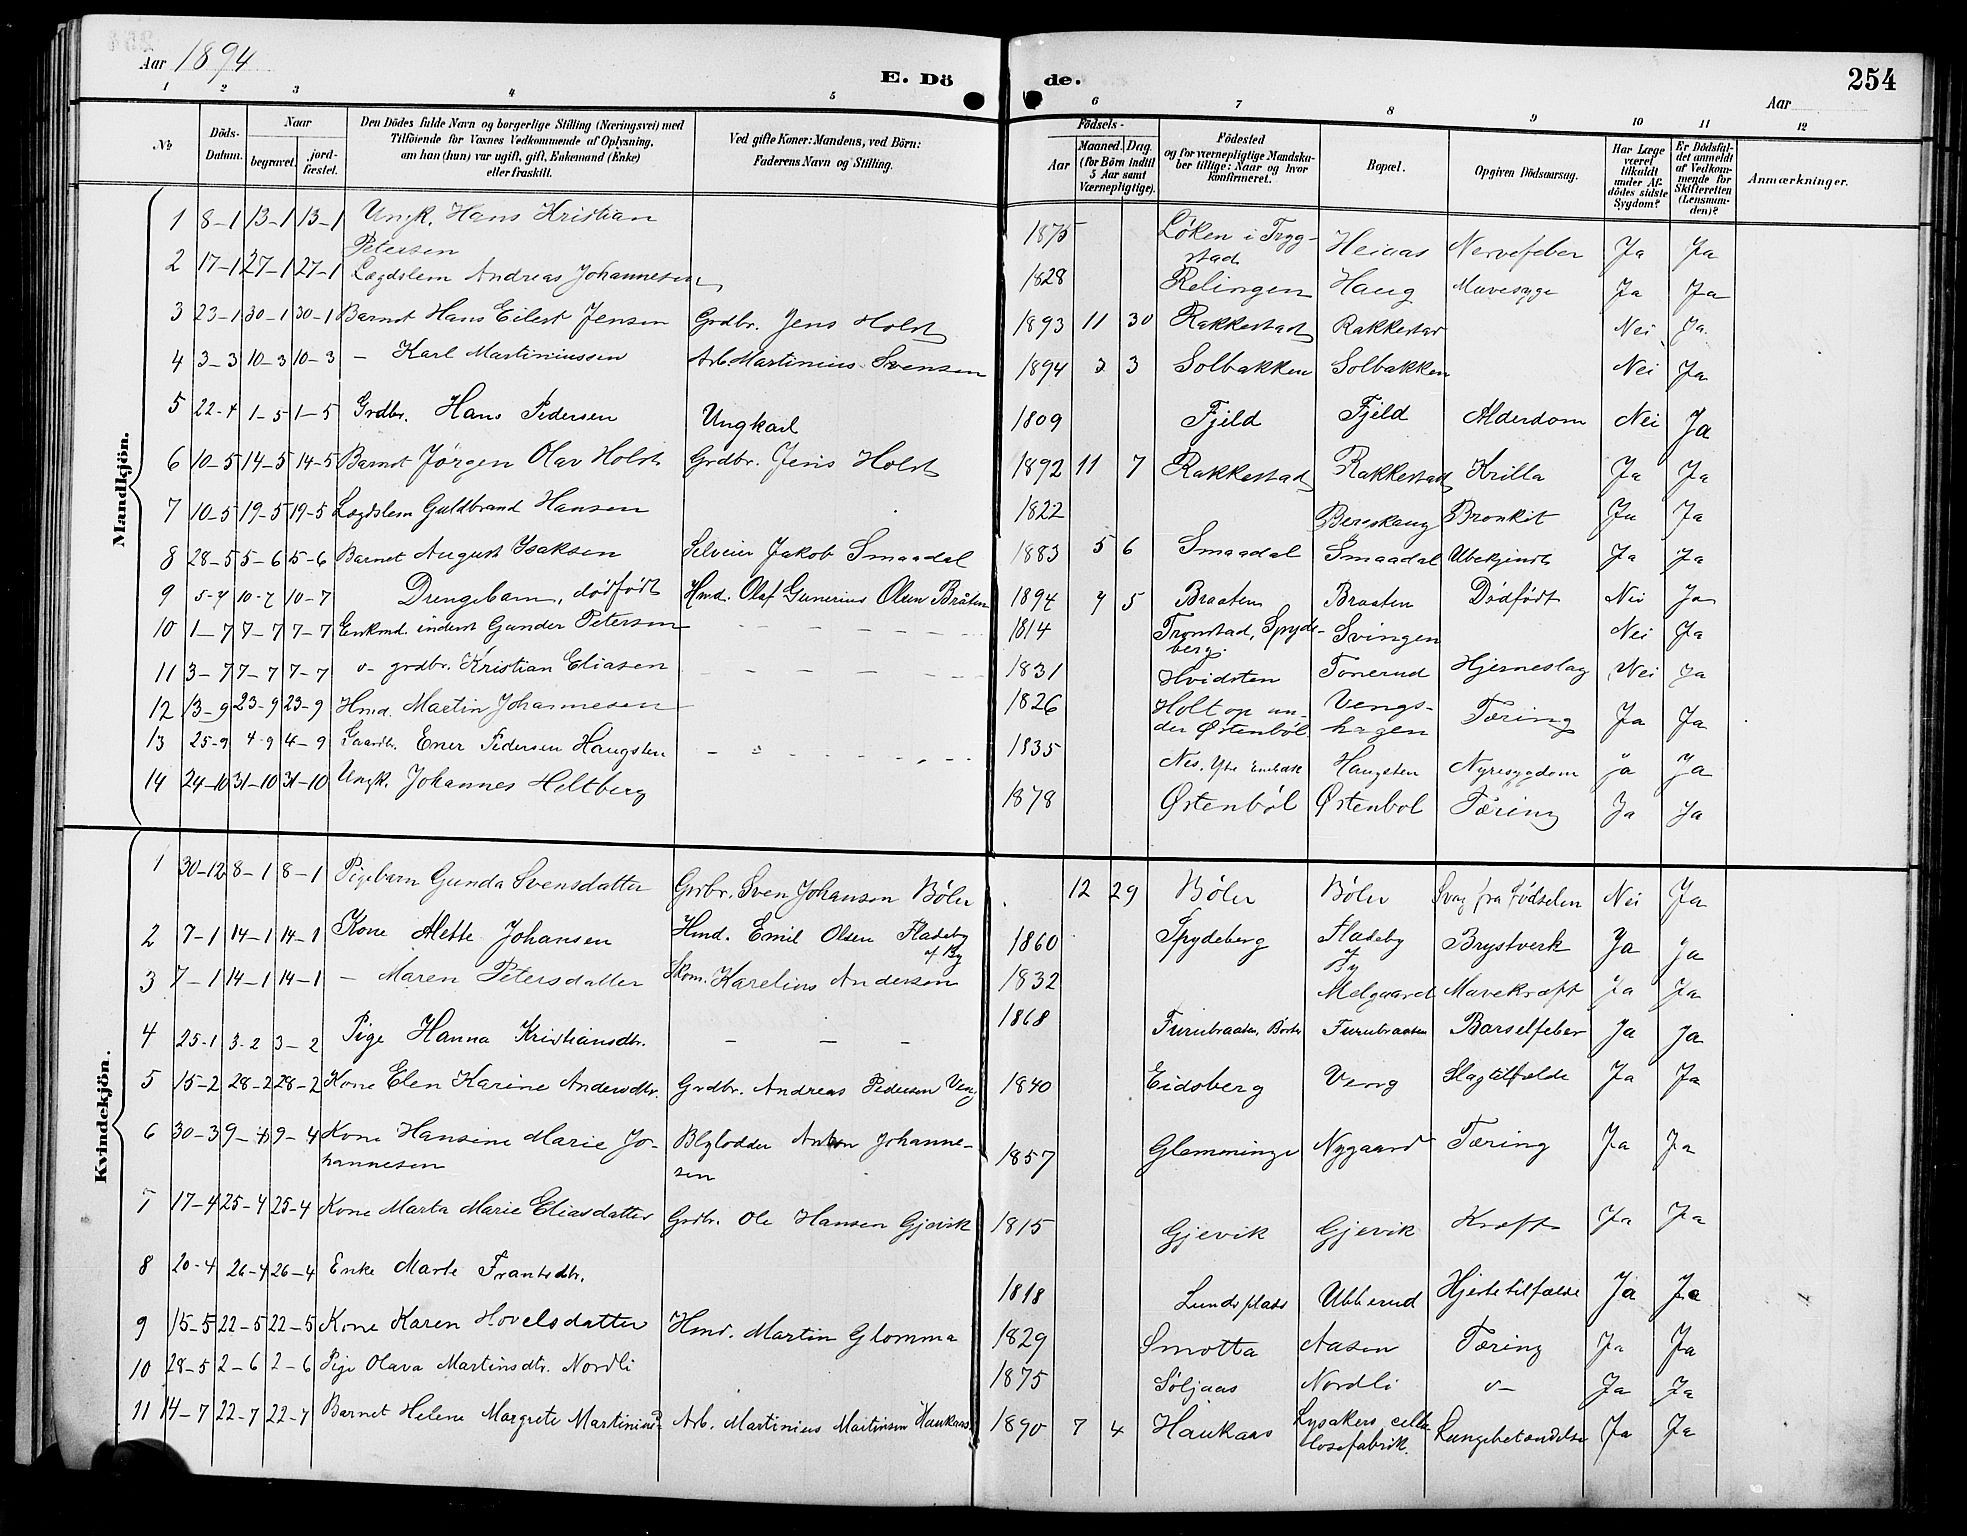 Aar 1894
E. Döde.
254
Aar
1 2 3 4 5 6 7 8 9 10 11 12
No
Döds-Datum.
Naar begravet. jord-fæstet.
Den Dödes fulde Navn og borgerlige Stilling (Næringsvei) med Tilföiende for Voxnes Vedkommende af Oplysning, om han (hun) var ugift, gift, Enkemand (Enke) eller fraskilt.
Ved gifte Koner: Mandens, ved Börn: Faderens Navn og Stilling.
Födsels-
Aar
Maaned. Dag. (for Börn indtil 5 Aar samt Værnepligtige).
Födested og for værnepligtige Mandskaber tillige: Naar og hvor konfirmeret.
Bopæl.
Opgiven Dödsaarsag.
Har Læge været tilkaldt under Afdödes sidste Sygdom?
Er Dödsfaldet anmeldt af Vedkommende for Skifteretten (Lensmanden)?
Anmærkninger.
Mandkjön.
1 8-1 13-1 13-1 Ungk. Hans Kristian Petersen 1875 Løken i Trygstad Heiaas Nervefeber Ja Ja
2 17-1 27-1 27-1 Lægdslem Andreas Johannesen 1828 Relingen Haug Mavesyge Ja Ja
3 23-1 30-1 30-1 Barnet Hans Eilert Jensen Grdbr. Jens Holst 1893 11 30 Rakkestad Rakkestad Nei Ja
4 3-3 10-3 10-3 - Karl Martiniussen Arb. Martinius Svensen 1894 3 3 Solbakken Solbakken Nei Ja
5 22-4 1-5 1-5 Grdbr. Hans Pedersen Ungkarl 1809 Fjeld Fjeld Alderdom Nei Ja
6 10-5 14-5 14-5 Barnet Jørgen Olav Holst Grdbr. Jens Holst 1892 11 7 Rakkestad Rakkestad Krilla Ja Ja
7 10-5 19-5 19-5 Lægdslem Guldbrand Hansen 1822 Bereskaug Bronkit Ja Ja
8 28-5 5-6 5-6 Barnet August Isaksen Selveier Jakob Smaadal 1883 5 6 Smaadal Smaadal Ubekjendt Ja Ja
9 5-7 10-7 10-7 Drengebarn, dødfødt Hmd. Olaf Gunerius Olsen Bråten 1894 7 5 Braaten Braaten Dødfødt Nei Ja
10 1-7 7-7 7-7 Enkmd. inderst Gunder Petersen - - - 1814 Tronstad, Spydeberg. Svingen Nei Ja
11 3-7 7-7 7-7 v- grdbr. Kristian Eliasen - - - 1831 Hvidsten Tonerud Hjerneslag Nei Ja
12 13-9 23-9 23-9 Hmd. Martin Johannesen 1826 Holt op under Østenbøl Vengshagen Tæring Ja Ja
13 25-9 4-9 4-9 Gaardbr. Ener Pedersen Haugsten - - - 1835 Nes, Haugsten Nyresygdom Ja Ja
14 24-10 31-10 31-10 Ungk. Johannes Heltberg 1878 Østenbøl Østenbøl Tæring Ja Ja
Kvindekjön.
1 30-12 8-1 8-1 Pigebarn Gunda Svensdatter Grdbr. Sven Johansen Bøler 12 29 Bøler Bøler Svag fra Fødselen Nei Ja
2 7-1 14-1 14-1 Kone Mette Johansen Hmd. Emil Olsen Fladeby af By 1860 Spydeberg Fladeby af By Brystverk Ja Ja
3 7-1 14-1 14-1 - Maren Petersdatter Skom. Karelius Andersen 1832 Melgaard Mavekræft Ja Ja
4 25-1 3-2 3-2 Pige Hanna Kristiansdtr. - - - 1868 Furubraaten, Furubraaten Barselfeber Ja Ja
5 15-2 28-2 28-2 Kone Elen Karine Andersdtr. Grdbr. Andreas Pedersen Veng 1840 Eidsberg Veng Slagtilfælde Ja Ja
6 30-3 9-4 9-4 Kone Hansine Marie Johannesen Blylodder Anton Johannesen 1857 Glemminge Nygaard Tæring Ja Ja
7 17-4 25-4 25-4 Kone Marta Marie Eliasdatter Grdbr. Ole Hansen Gjevik 1815 Gjevik Gjevik Kræft Ja Ja
8 20-4 26-4 26-4 Enke Marte Frantsdtr. 1818 Lundsplads Ubberud Hjertetilfælde Ja Ja
9 15-5 22-5 22-5 Kone Karen Hovelsdatter Hmd. Martin Glomma 1829 Smotta Aasen Tæring Ja Ja
10 28-5 2-6 2-6 Pige Olava Martinsdtr. Nordli 1875 Søljaas Nordli v- Ja Ja
11 14-7 22-7 22-7 Barnet Helene Margrete Martinius Arb. Martinius Martinsen Haukaas. 1890 7 4 Haukaas Lysakers cellulosefabrik. Lungebetændelse Ja Ja